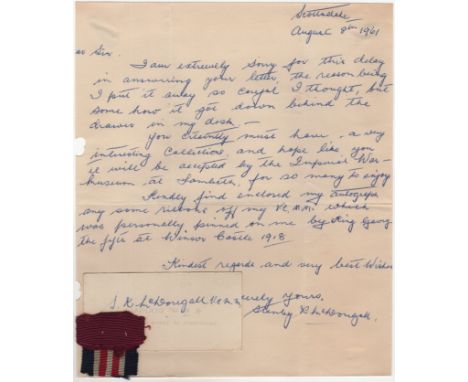 Scottsdale
August 8th 1961
Dear Sir.
I am extremely sorry for this delay
in answering your letter, the reason being
I put it away so careful I thought, but
some how it got down behind the
drawer in my desk —
You certently must have a very
interesting Collections, and hope like you
it will be accepted by the Imperial War-
museum at Lambeth, for so many to enjoy
Kindly find enclosed my autograph
any some ribbons off my V.C. M.M. which
was personally pinned on me by King George
the fifth at Winsor Castle 1918
Kindest regards and very best Wishes
Yours,
Stanley R McDougall.
S. R. McDougall V.C. M.M.